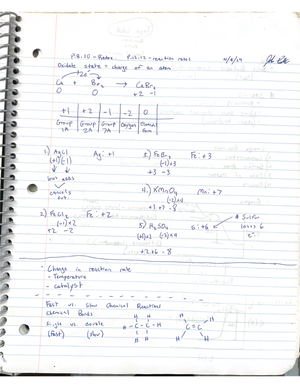 P.8.10 - Redox P.10.12 - reaction rates
Oxidate state = charge of an atom
2e-
Ca + Br2 → CaBr2
0 0 +2 -1
+1 +2 -1 -2 0
Group 1A Group 2A Group 7A Oxygen
1) AgCl Ag: +1 3) FeBr3 Fe: +3
(+1)(-1) (-1)×3
+3 -3
cancels out
4) KMnO4 Mn: +7
(-2)×4
+1 +7 -8
2) FeCl2 Fe: +2
(-1)×2
+2 -2
5) H2SO4 S: +6
(+1)×2 (-2)×4
+2 +6 -8
Sulfur loses 6 e-
- Change in reaction rate
- Temperature
- catalyst
Fast vs. Slow Chemical Reactions
Chemical Bonds
Single vs. double
(Fast) (Slow)
H H
H - C - C - H
H H
H H
C = C
H H